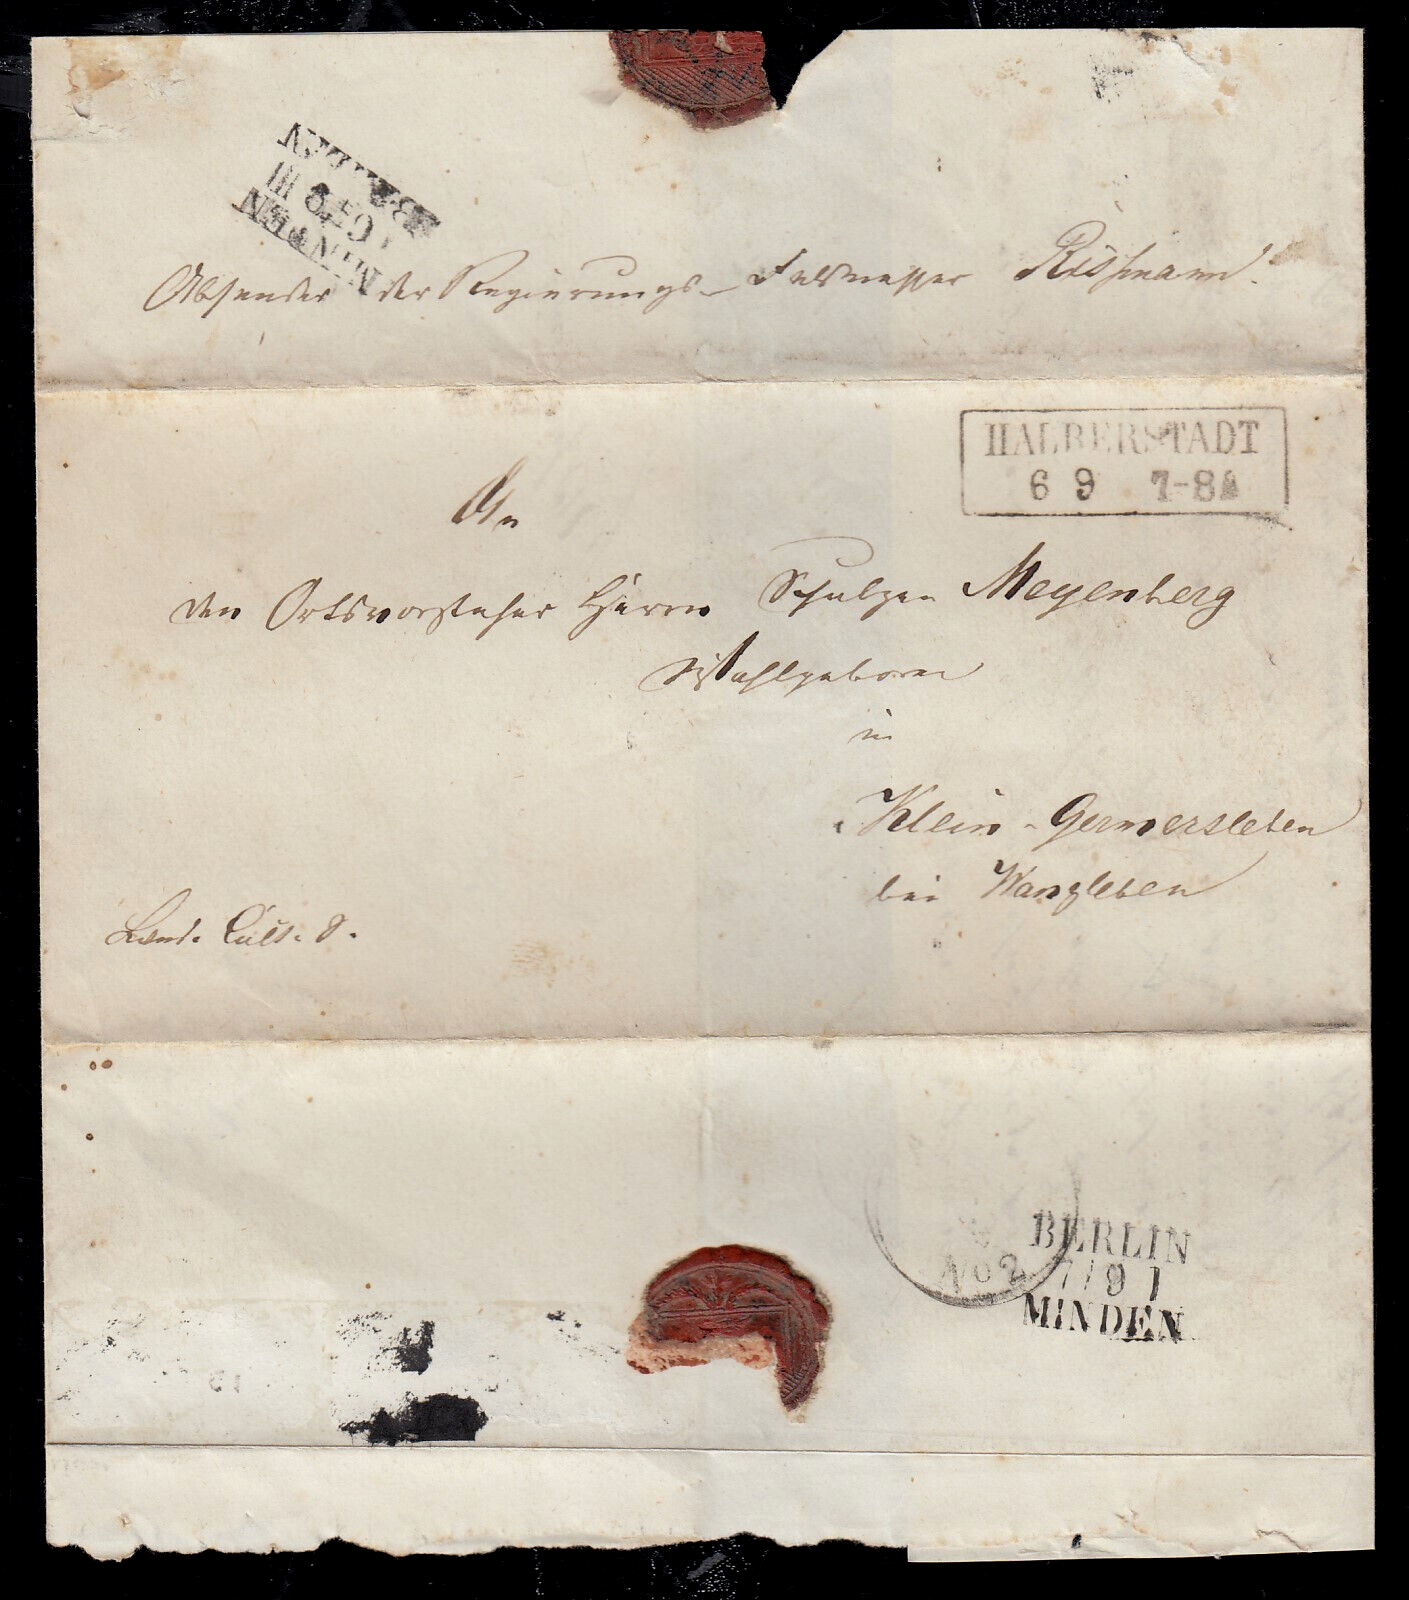 MINDEN
6 9 III
BERLIN
Absender der Regierungs-Feldmesser Rißmann.
HALBERSTADT
6 9 7-8
An
den Ortsvorsteher Herrn Schulzen Meyenberg
Wohlgeboren
in
Klein-Germersleben
bei Wanzleben
Land. Cult. S.
BERLIN
7/9 I
MINDEN
N02